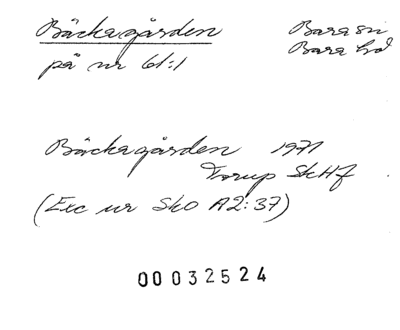 Bäckagården
på nr 61:1
Bara sn
Bara hd
Bäckagården 1971
Torup SkHf
(Exc ur SkO A2:37)
00032524